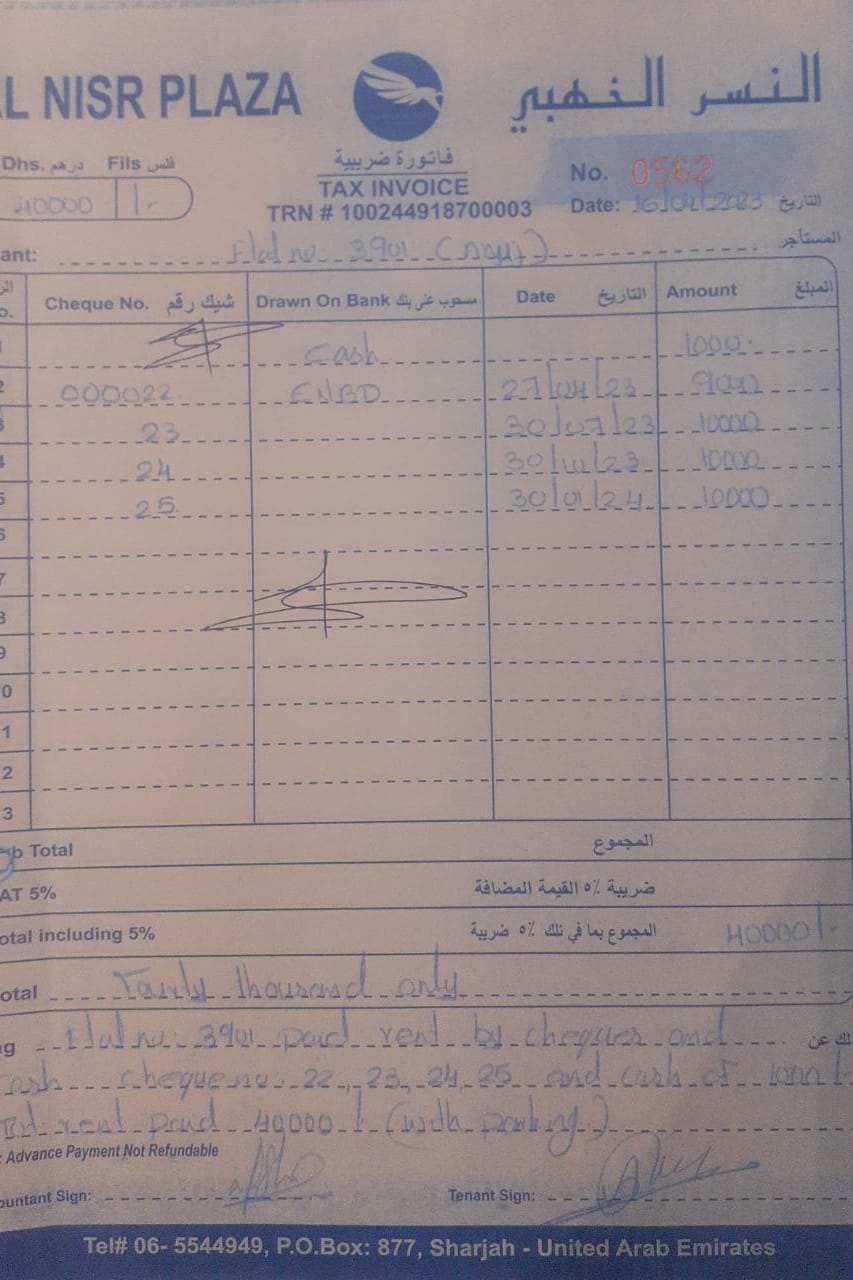 L NISR PLAZA
النسر الذهبي
Dhs. درهم Fils فلس
40000 /-
فاتورة ضريبية
TAX INVOICE
TRN # 100244918700003
No. 0562
Date: 16/04/2023 التاريخ
ant: Flat no. 3901 المستأجر
Cheque No. شيك رقم Drawn On Bank مسحوب على بنك Date التاريخ Amount المبلغ
Cash 1000
2 000022 ENBD 27/04/23 9000
23 30/07/23 10000
24 10000
5 25 30/01/24 10000
6
7
8
9
0
1
2
3
b Total المجموع
AT 5% ضريبة ٥٪ القيمة المضافة
otal including 5% المجموع بما في تلك ٥٪ ضريبة 40000/-
otal thousand only
g Flat no. 3901 paid rent by cheques and ذلك عن
cash cheque no. 22, 23, 24, 25 and cash of 1000/-
rent paid 40000/- (with parking)
: Advance Payment Not Refundable
ountant Sign: Tenant Sign:
Tel# 06- 5544949, P.O.Box: 877, Sharjah - United Arab Emirates